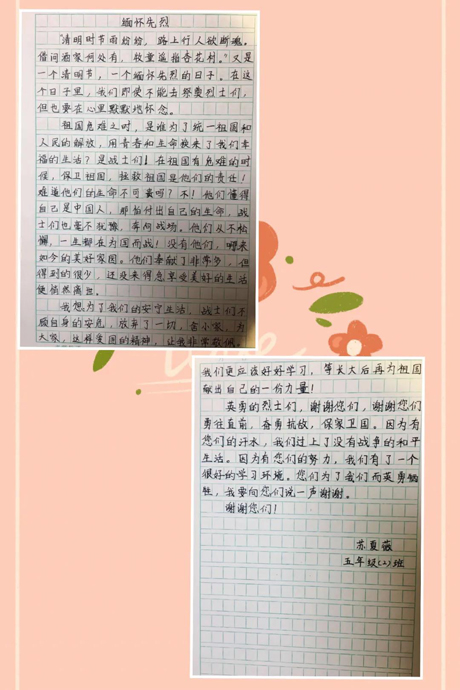 缅怀先烈
"清明时节雨纷纷，路上行人欲断魂。
借问酒家何处有，牧童遥指杏花村。"又是
一个清明节，一个缅怀先烈的日子。在这
个日子里，我们即使不能去祭奠烈士们，
但也要在心里默默地怀念。
祖国危难之时，是谁为了统一祖国和
人民的解放，用青春和生命换来了我们幸
福的生活？是战士们！在祖国有危难的时
候，保卫祖国，拯救祖国是他们的责任！
难道他们的生命不可贵吗？不！他们懂得
自己是中国人，那怕付出自己的生命，战
士们也毫不犹豫，奔向战场。他们从不松
懈，一生都在为国而战！没有他们，哪来
如今的美好家园。他们奉献了非常多，但
得到的很少，还没来得急享受美好的生活
便悄然离世。
我想为了我们的安宁生活，战士们不
顾自身的安危，放弃了一切，舍小家，为
大家，这样爱国的精神，让我非常敬佩，
我们更应该好好学习，等长大后再为祖国
献出自己的一份力量！
英勇的烈士们，谢谢您们，谢谢您们
勇往直前，奋勇抗敌，保家卫国。因为有
您们的汗水，我们过上了没有战争的和平
生活。因为有您们的努力，我们有了一个
很好的学习环境。您们为了我们而英勇牺
牲，我要向您们说一声谢谢。
谢谢您们！
苏夏薇
五年级(2)班